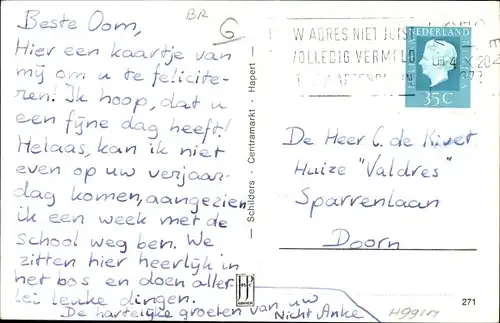 Beste Oom,
Hier een kaartje van
mij om u te felicite-
ren. Ik hoop, dat u
een fijne dag heeft!
Helaas, kan ik niet
even op uw verjaar-
dag komen, aangezien
ik een week met de
school weg ben. We
zitten hier heerlijk in
het bos en doen aller
lei leuke dingen.
De hartelijke groeten van uw
Nicht Anke
BR
6
— Schilders - Centramarkt - Hapert —
UW ADRES NIET JUIST
VOLLEDIG VERMELD
NEDERLAND
35 C
De Heer C. de Kivet
Huize "Valdres"
Sparrenlaan
Doorn
JP
271